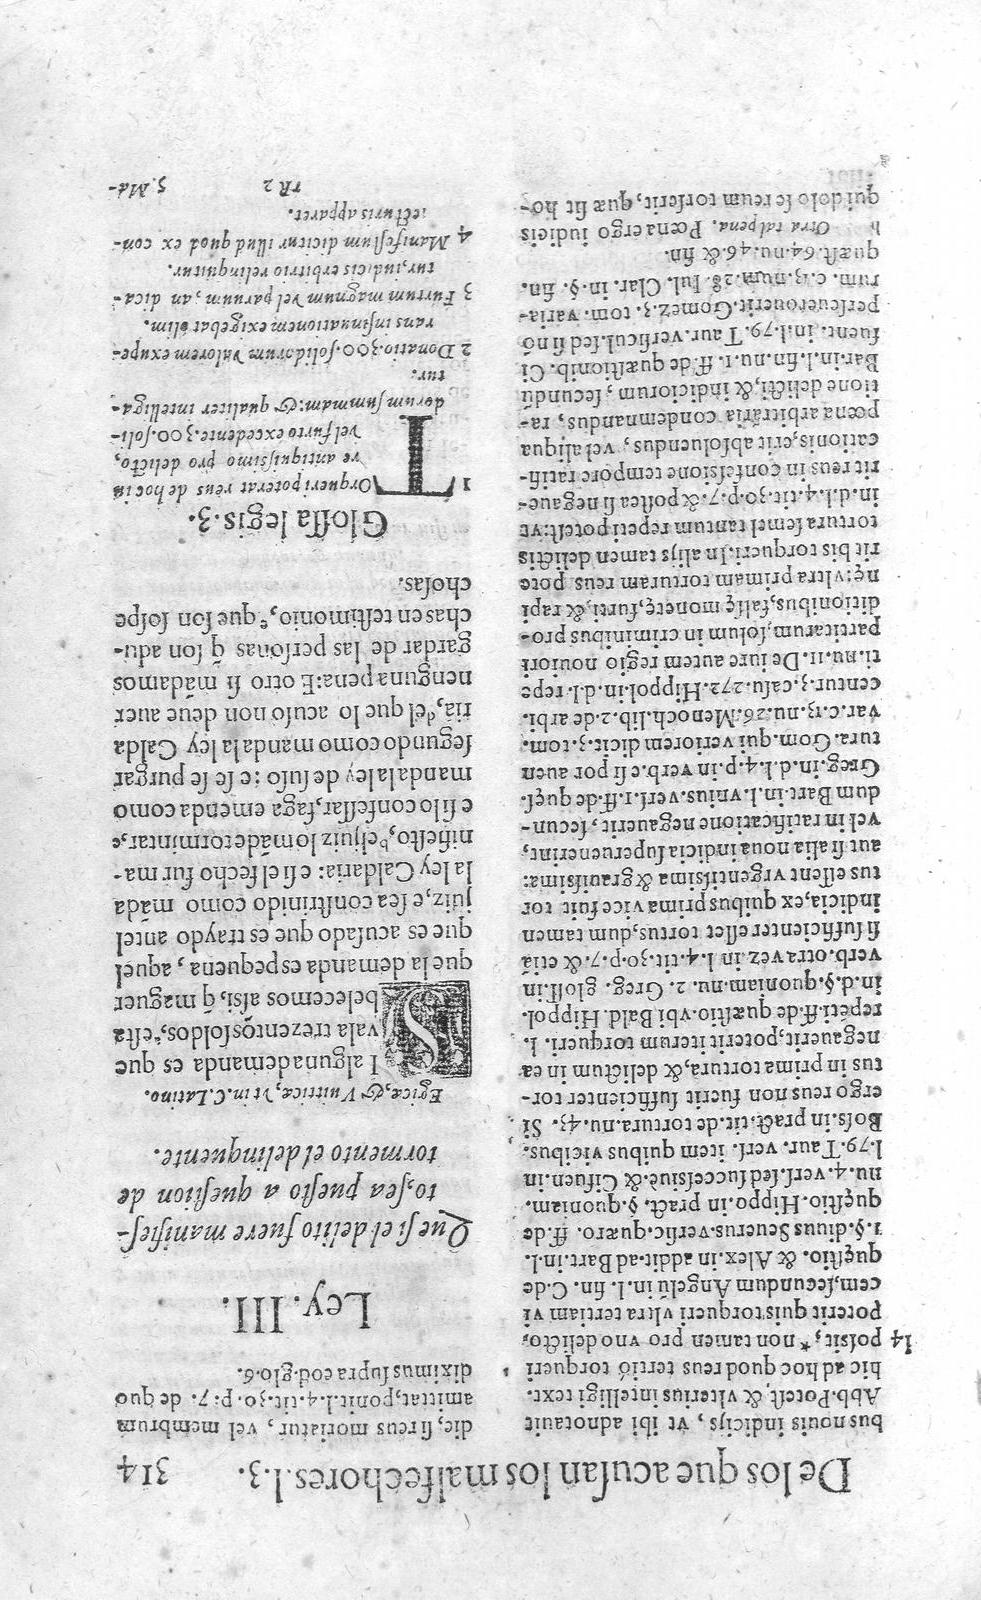 De los que acusan los malfechores.l.3. 314
bus nouis indicijs, vt ibi adnotauit
Abb. Post. & vlterius intelligi text.
hic ad hoc quod reus tertiò torqueri
14 possit, * non tamen pro vno delicto,
poterit quis torqueri vltra tertiam vi
cem, secundum Angelũ in.l. fin. C.de
quęstio. & Alex.in addit.ad Bart.in.l.
1.§.diuus Seuerus.versic.quæro. ff.de
quęstio. Hippo.in pract. §. quoniam.
nu.4.vers.sed successiuè.& Cifuen.in
l.79. Taur. vers. item quibus vicibus.
Boss.in pract.tit.de tortura.nu.43. Si
ergo reus non fuerit sufficienter tor-
tus in prima tortura,& delictum in ea
negauerit,poterit iterum torqueri. l.
repeti.ff.de quæstio.vbi Bald. Hippol.
in.d.§.quoniam.nu. 2. Greg. gloss.in
verb.otra vez.in l.4.tit.30.p.7.& etiã
si sufficienter esset tortus,dum tamen
indicia,ex quibus prima vice fuit tor
tus essent vrgentissima & grauissima:
aut si alia noua indicia superuenerint,
vel in ratificatione negauerit, secun-
dum Bart.in.l.vnius.vers.1.ff.de quęs.
Greg.in.d.l.4.p.in verb.e si por auen
tura. Gom.qui veriorem dicit.3.tom.
var.c.13.nu.26. Menoch.lib.2.de arbi.
centur.3.casu.272.Hippol.in.d.l.repe
ti.nu.11. De iure autem regio nouiori
partitarum,solum in criminibus pro-
ditionibus,falsę monetę,furti,& rapi
nę:vltra primam torturam reus pote
rit bis torqueri.In alijs tamen delictis
tortura semel tantum repeti potest:vt
in.d.l.4.tit.30.p.7.& postea si negaue-
rit reus in confessione tempore ratifi-
cationis,erit absoluendus, vel aliqua
pœna arbitraria condemnandus, ra-
tione delicti,& indiciorum, secundũ
Bar.in.l.fin.nu.1. ff.de quæstionib. Ci
fuent. in.l.79. Taur.versicul.sed si nõ
perseuerauerit.Gomez.3. tom. varia-
rum. c.13.num.28. Iul. Clar. in. §. fin.
quæst.64.nu.46.& fin.
h Otra tal pena. Pœna ergo iudicis
qui dolo se reum torserit, quæ sit ho-
die, si reus moriatur, vel membrum
amittat, ponit.l.4.tit.30.p:7. de quo
diximus supra eod.glo.6.
Ley. III.
Que si el delito fuere manifies-
to, sea puesto a question de
tormento el delinquente.
Egica,& Vuittica, xi in.C.Latino.
SI alguna demanda es que
vala trezentos soldos, esta
belecemos assi, q̃ maguer
que la demanda es pequena, aquel
que es acusado que es traydo antel
juiz, e sea constrinido como mãda
la ley Caldaria: e si el fecho fur ma-
nifiesto,b el juiz lo mãde tormintar, e
e si lo confessar, faga emenda como
manda la ley de suso: e se se purgar
segundo como manda la ley Calda
ria,d el que lo acusó non deue auer
nenguna pena: E otro si mãdamos
gardar de las personas q̃ son adu-
chas en testimonio,e que son sospe
chosas.
Glossa legis.3.
1 TOrqueri poterat reus de hoc iu
re antiquissimo pro delicto,
vel furto excedente.300.soli-
dorum summam:& qualiter intelliga-
tur.
2 Donatio.300.solidorum valorem exupe-
rans insinuationem exigebat olim.
3 Furtum magnum vel paruum, an dica-
tur, iudicis arbitrio relinquitur.
4 Manifestum dicitur illud quod ex con-
iecturis apparet.
rR 2 5. Ma-